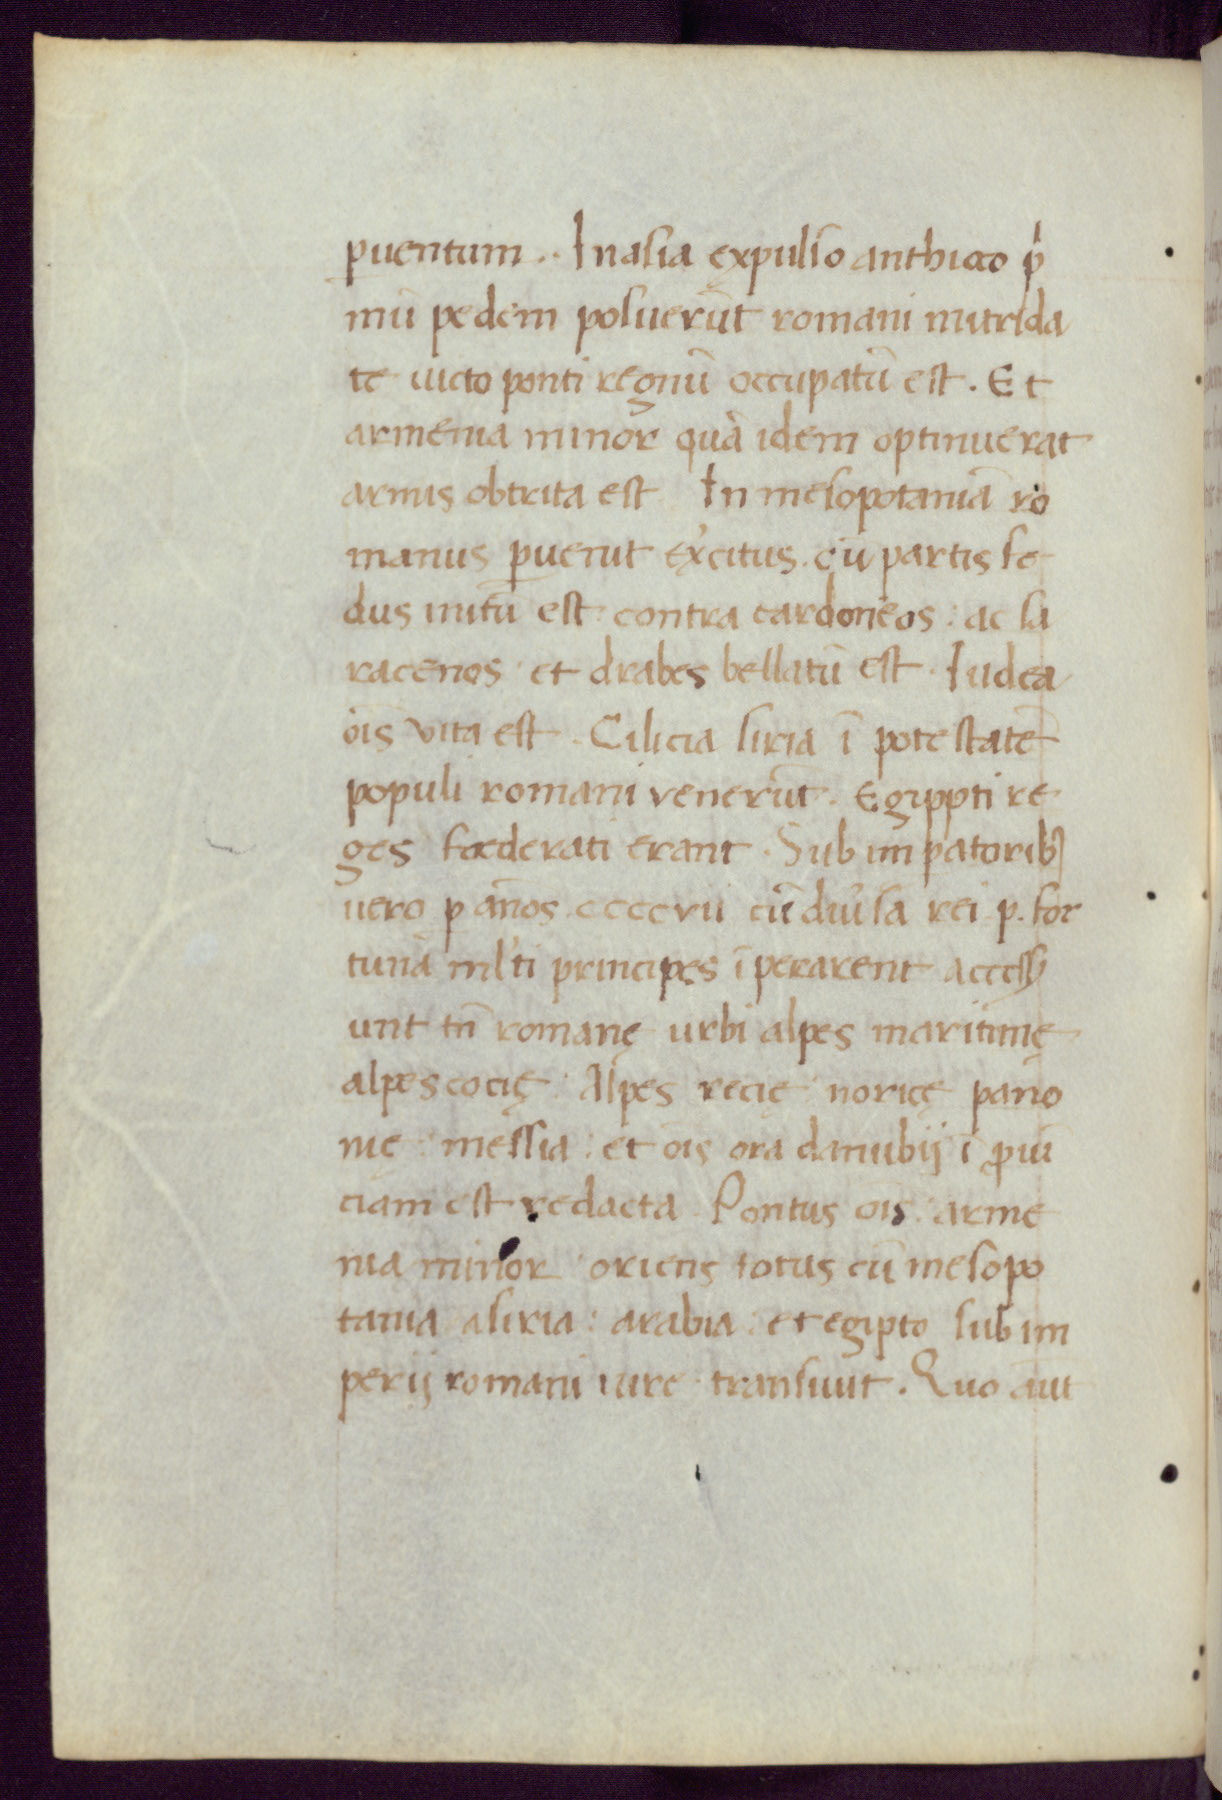 puentum. Inasia ęxpulso anthioco p̍
mū pedem posuerūt romani mitrida
te uicto ponti regnū occupatū est. Et
armenia minor quā idem optinuerat
armis obtrita est In mesopotamiā ro
manus ꝑuenit ex̍citus. cū partis fe
dus initū est contra cardoneos: ac sa
racenos et arabes bellatū est. Iudea
oīs vita est. Cilicia siria ī potestatē
populi romani venerūt. Egippti re
ges foederati erant. Sub impatorib;
uero p ānos ccccvii cū diu̍sa rei p. for
tunā ml̍ti principes īperarent access̍
unt tn̄ romanę urbi alpes maritimę
alpes cocię: Alpes recię noricę pano
nię: messia: et oīs ora danubij ī ꝓui
ciam est redacta. Pontus oīs: arme
nia minor oriēns totus cū mesopo
tamia asiria: arabia: et egipto sub im
perij romani iure transiuit. Quo aūt